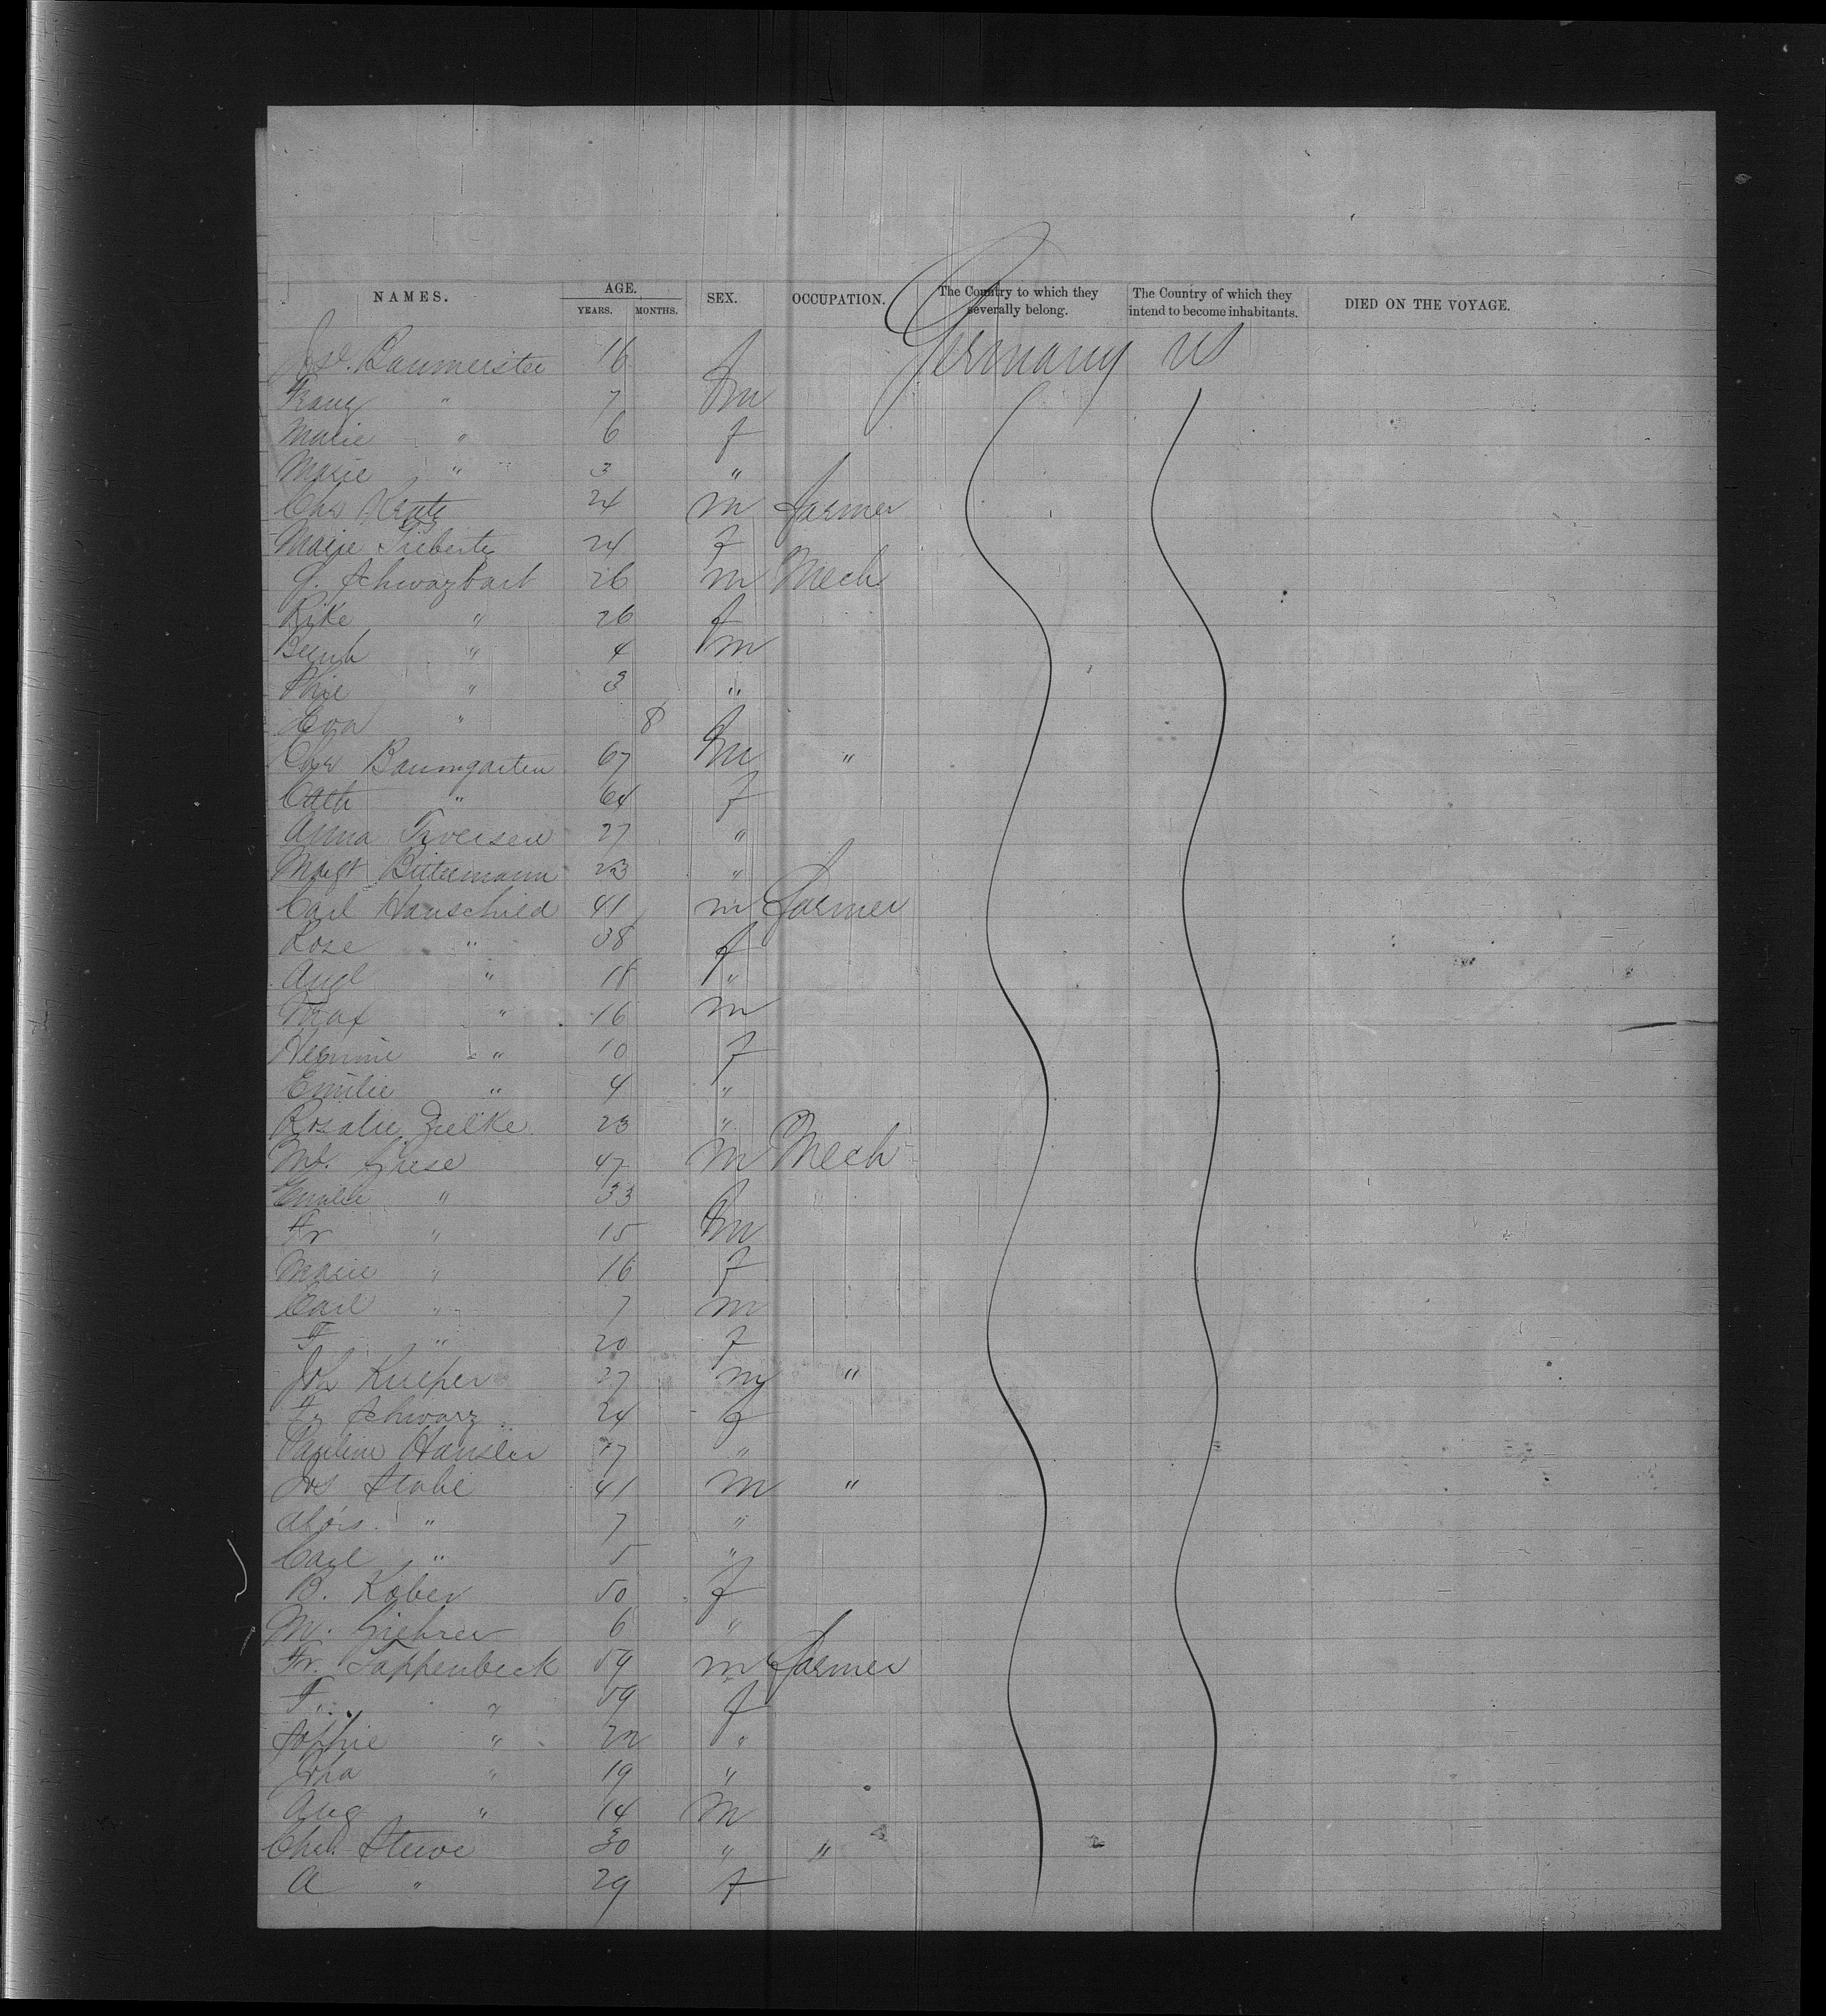 NAMES. AGE. YEARS. MONTHS. SEX. OCCUPATION. The Country to which they severally belong. The Country of which they intend to become inhabitants. DIED ON THE VOYAGE.
Jos. Baumeister 16 f Germany US
Franz " 7 m
Marie " 6 f
Marie " 3 "
Chs 24 m farmer
Marie Sieberts 24 f
G. Schwazbart 26 m Mech
Rike " 26 f
" 4 m
" 3 "
Eva " 8 f
Chr Baumgarten 67 m "
Cath " 64 f
Anna Iwersen 27 "
Margt 23 "
Carl Hauschild 41 m farmer
Rose " 38 f
Augl " 18 "
" 16 m
Hermine " 10 f
Emilie " 4 "
Rosalie Zielke 23 "
Md. Giese 47 m Mech
Emilie " 33 f
Fr " 15 m
Marie " 16 f
Carl " 7 m
F " 20 f
Joh Kuiper 27 m "
Fr Schwarz 24 f
Pauline Hansler 17 "
Jos Stabe 41 m "
Alois " 7 "
Carl " 5 "
B. Kober 50 f
M. Giehrer 6 "
Fr. Tappenbeck 59 m farmer
F. " 59 f
Sophie " 22 "
Joha " 19 "
Aug " 14 m
Chs. Stuve 30 " "
A " 29 f